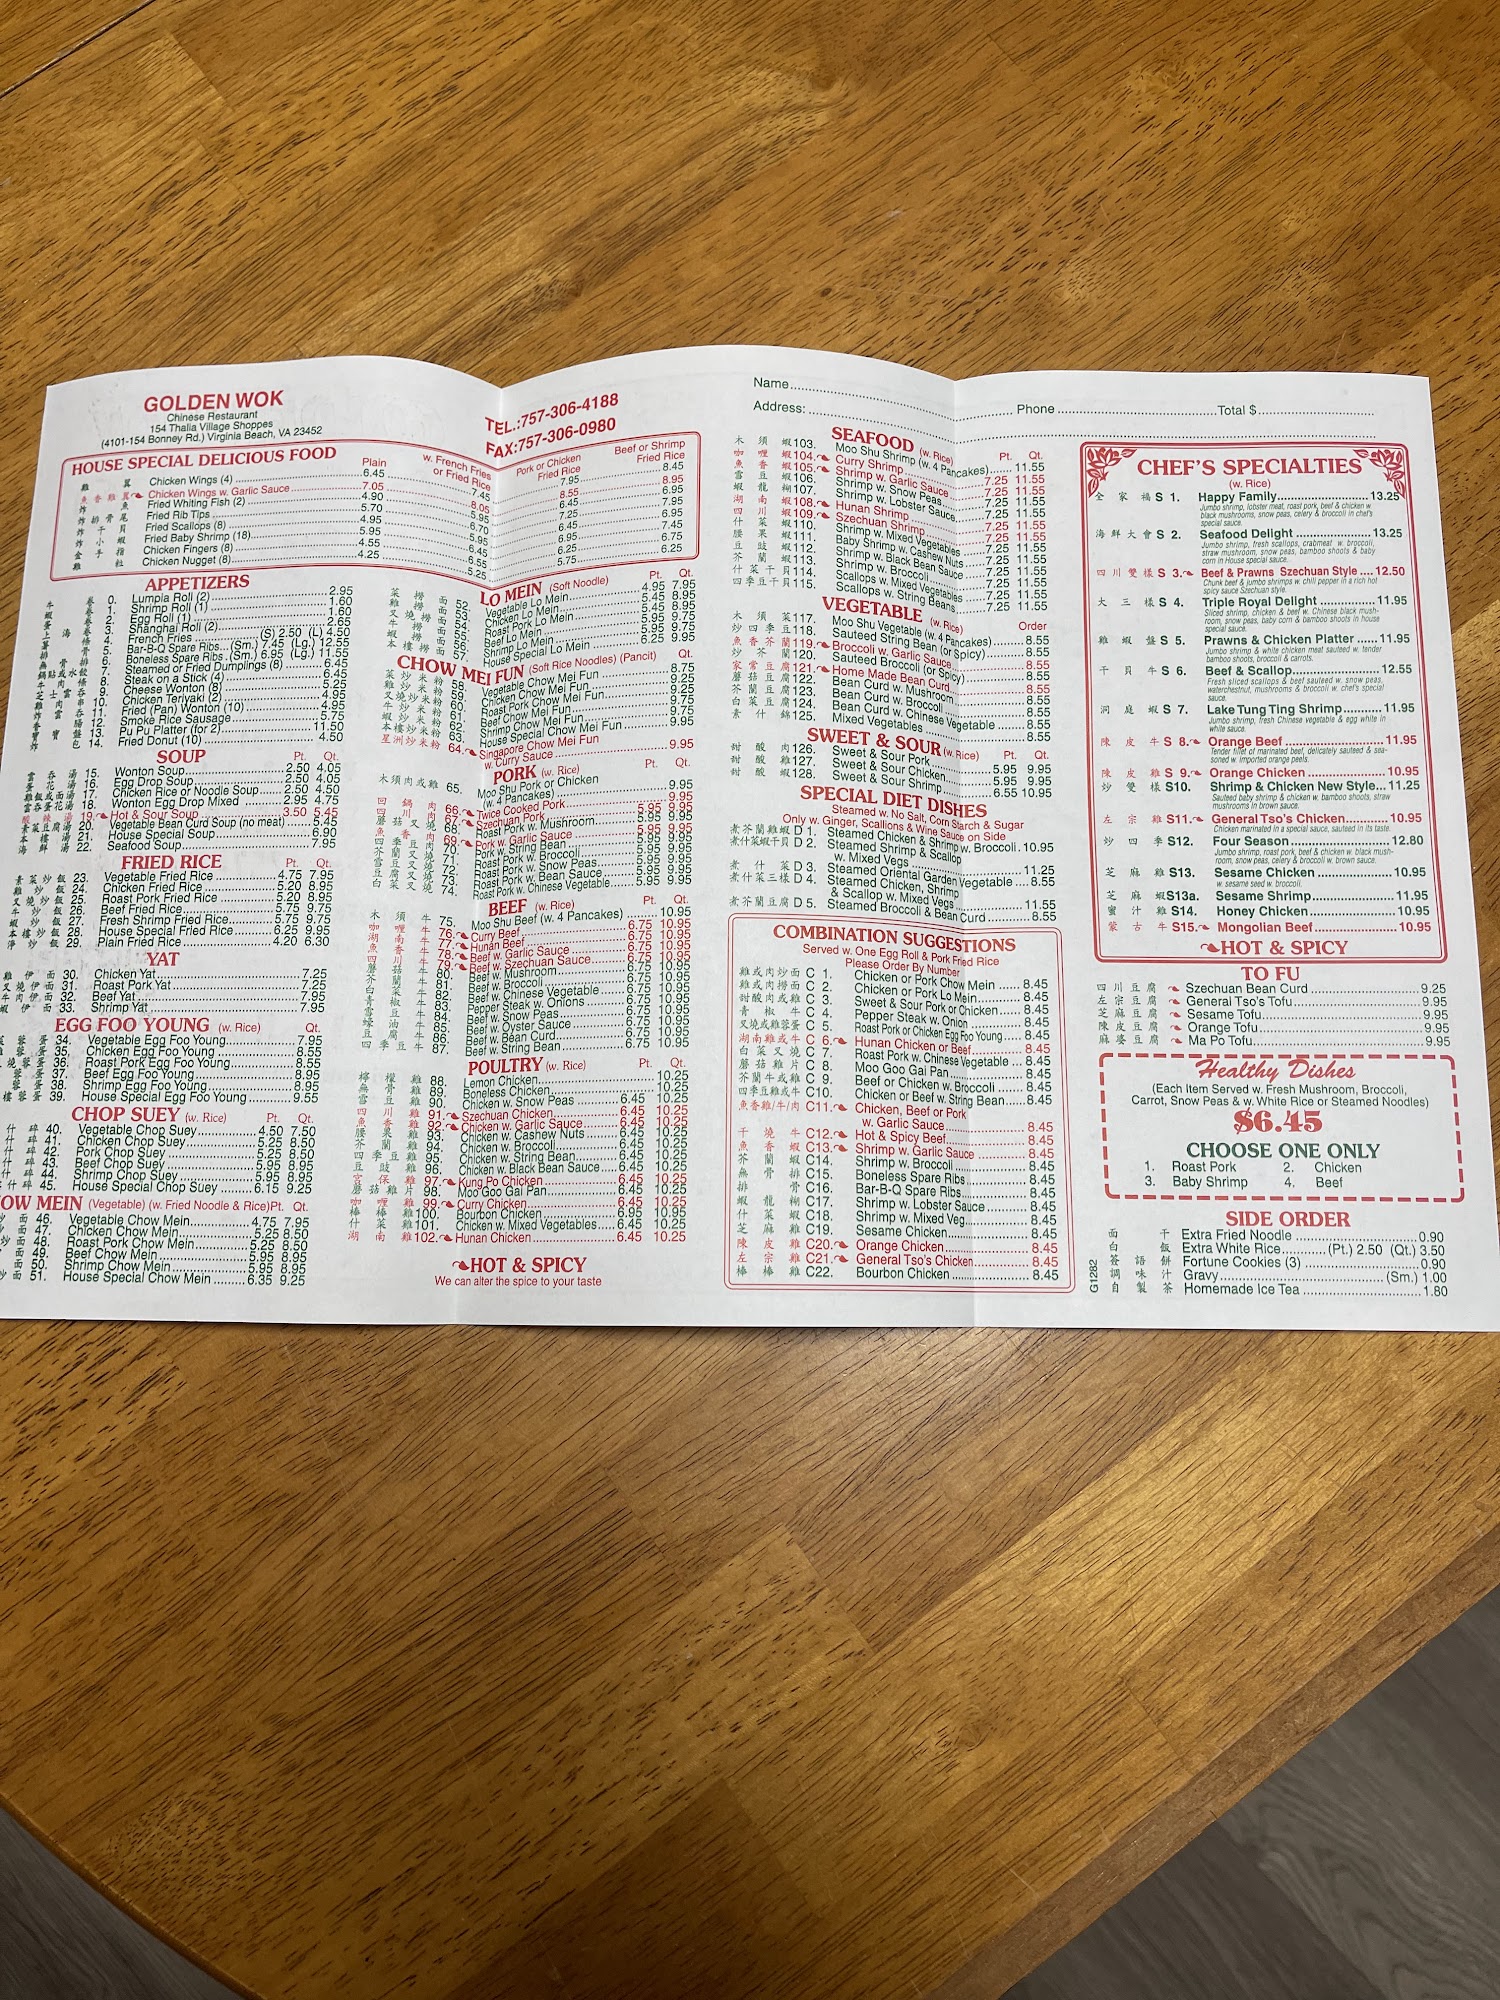 GOLDEN WOK
Chinese Restaurant
154 Thalia Village Shoppes
(4101-154 Bonney Rd.) Virginia Beach, VA 23452
TEL.:757-306-4188
FAX:757-306-0980
HOUSE SPECIAL DELICIOUS FOOD
Plain
w. French Fries or Fried Rice
Pork or Chicken Fried Rice
Beef or Shrimp Fried Rice
Chicken Wings (4) 6.45 7.45 7.95 8.45
Chicken Wings w. Garlic Sauce 7.05 8.05 8.55 8.95
Fried Whiting Fish (2) 4.90 5.95 6.45 6.95
Fried Rib Tips 5.70 6.70 7.25 7.95
Fried Scallops (8) 4.95 5.95 6.45 6.95
Fried Baby Shrimp (18) 5.95 6.45 6.95 7.45
Chicken Fingers (8) 4.55 5.55 5.95 6.75
Chicken Nugget (8) 4.25 5.25 5.75 6.25
APPETIZERS
0. Lumpia Roll (2) 2.95
1. Shrimp Roll (1) 1.60
2. Egg Roll (1) 1.60
3. Shanghai Roll (2) 2.65
4. French Fries (S) 2.50 (L) 4.50
5. Bar-B-Q Spare Ribs (Sm.) 7.45 (Lg.) 12.55
6. Boneless Spare Ribs (Sm.) 6.95 (Lg.) 11.55
7. Steamed or Fried Dumplings (8) 6.45
8. Steak on a Stick (4) 6.25
9. Cheese Wonton (8) 5.45
10. Chicken Teriyaki (2) 4.95
11. Fried (Pan) Wonton (10) 4.95
12. Smoke Rice Sausage 5.75
13. Pu Pu Platter (for 2) 11.50
14. Fried Donut (10) 4.50
SOUP Pt. Qt.
15. Wonton Soup 2.50 4.05
16. Egg Drop Soup 2.50 4.05
17. Chicken Rice or Noodle Soup 2.50 4.50
18. Wonton Egg Drop Mixed 2.95 4.75
19. Hot & Sour Soup 3.50 5.45
20. Vegetable Bean Curd Soup (no meat) 5.45
21. House Special Soup 6.90
22. Seafood Soup 7.95
FRIED RICE Pt. Qt.
23. Vegetable Fried Rice 4.75 7.95
24. Chicken Fried Rice 5.20 8.95
25. Roast Pork Fried Rice 5.20 8.95
26. Beef Fried Rice 5.75 9.75
27. Fresh Shrimp Fried Rice 5.75 9.75
28. House Special Fried Rice 6.25 9.95
29. Plain Fried Rice 4.20 6.30
YAT
30. Chicken Yat 7.25
31. Roast Pork Yat 7.25
32. Beef Yat 7.95
33. Shrimp Yat 7.95
EGG FOO YOUNG (w. Rice) Qt.
34. Vegetable Egg Foo Young 7.95
35. Chicken Egg Foo Young 8.55
36. Roast Pork Egg Foo Young 8.55
37. Beef Egg Foo Young 8.95
38. Shrimp Egg Foo Young 8.95
39. House Special Egg Foo Young 9.55
CHOP SUEY (w. Rice) Pt. Qt.
40. Vegetable Chop Suey 4.50 7.50
41. Chicken Chop Suey 5.25 8.50
42. Pork Chop Suey 5.25 8.50
43. Beef Chop Suey 5.95 8.95
44. Shrimp Chop Suey 5.95 8.95
45. House Special Chop Suey 6.15 9.25
OW MEIN (Vegetable) (w. Fried Noodle & Rice) Pt. Qt.
46. Vegetable Chow Mein 4.75 7.95
47. Chicken Chow Mein 5.25 8.50
48. Roast Pork Chow Mein 5.25 8.50
49. Beef Chow Mein 5.95 8.95
50. Shrimp Chow Mein 5.95 8.95
51. House Special Chow Mein 6.35 9.25
LO MEIN (Soft Noodle) Pt. Qt.
52. Vegetable Lo Mein 4.95 7.95
53. Chicken Lo Mein 5.45 8.95
54. Roast Pork Lo Mein 5.45 8.95
55. Beef Lo Mein 5.95 9.75
56. Shrimp Lo Mein 5.95 9.75
57. House Special Lo Mein 6.25 9.95
CHOW MEI FUN (Soft Rice Noodles) (Pancit) Qt.
58. Vegetable Chow Mei Fun 8.75
59. Chicken Chow Mei Fun 9.25
60. Roast Pork Chow Mei Fun 9.25
61. Beef Chow Mei Fun 9.75
62. Shrimp Chow Mei Fun 9.75
63. House Special Chow Mei Fun 9.95
64. Singapore Chow Mei Fun
w. Curry Sauce 9.95
PORK (w. Rice) Pt. Qt.
65. Moo Shu Pork or Chicken
(w. 4 Pancakes) 9.95
66. Twice Cooked Pork 9.95
67. Szechuan Pork 5.95 9.95
68. Roast Pork w. Mushroom 5.95 9.95
69. Pork w. Garlic Sauce 5.95 9.95
70. Pork w. String Bean 5.95 9.95
71. Roast Pork w. Broccoli 5.95 9.95
72. Roast Pork w. Snow Peas 5.95 9.95
73. Roast Pork w. Bean Curd 5.95 9.95
74. Roast Pork w. Chinese Vegetable 5.95 9.95
BEEF (w. Rice) Pt. Qt.
75. Moo Shu Beef (w. 4 Pancakes) 10.95
76. Curry Beef 6.75 10.95
77. Hunan Beef 6.75 10.95
78. Beef w. Garlic Sauce 6.75 10.95
79. Beef w. Szechuan Sauce 6.75 10.95
80. Beef w. Mushroom 6.75 10.95
81. Beef w. Broccoli 6.75 10.95
82. Beef w. Chinese Vegetable 6.75 10.95
83. Pepper Steak w. Onions 6.75 10.95
84. Beef w. Snow Peas 6.75 10.95
85. Beef w. Oyster Sauce 6.75 10.95
86. Beef w. Bean Curd 6.75 10.95
87. Beef w. String Bean 6.75 10.95
POULTRY (w. Rice) Pt. Qt.
88. Lemon Chicken 10.25
89. Boneless Chicken 10.25
90. Chicken w. Snow Peas 6.45 10.25
91. Szechuan Chicken 6.45 10.25
92. Chicken w. Garlic Sauce 6.45 10.25
93. Chicken w. Cashew Nuts 6.45 10.25
94. Chicken w. Broccoli 6.45 10.25
95. Chicken w. String Bean 6.45 10.25
96. Chicken w. Black Bean Sauce 6.45 10.25
97. Kung Po Chicken 6.45 10.25
98. Moo Goo Gai Pan 6.45 10.25
99. Curry Chicken 6.45 10.25
100. Bourbon Chicken 6.95 10.95
101. Chicken w. Mixed Vegetables 6.45 10.25
102. Hunan Chicken 6.45 10.25
HOT & SPICY
We can alter the spice to your taste
Name
Address:
Phone
Total $
SEAFOOD (w. Rice) Pt. Qt.
103. Moo Shu Shrimp (w. 4 Pancakes) 11.55
104. Curry Shrimp 7.25 11.55
105. Shrimp w. Garlic Sauce 7.25 11.55
106. Shrimp w. Snow Peas 7.25 11.55
107. Shrimp w. Lobster Sauce 7.25 11.55
108. Hunan Shrimp 7.25 11.55
109. Szechuan Shrimp 7.25 11.55
110. Shrimp w. Mixed Vegetables 7.25 11.55
111. Baby Shrimp w. Cashew Nuts 7.25 11.55
112. Shrimp w. Black Bean Sauce 7.25 11.55
113. Shrimp w. Broccoli 7.25 11.55
114. Scallops w. Mixed Vegetables 7.25 11.55
115. Scallops w. String Beans 7.25 11.55
VEGETABLE (w. Rice) Order
117. Moo Shu Vegetable (w. 4 Pancakes) 8.55
118. Sauteed String Bean (or Spicy) 8.55
119. Broccoli w. Garlic Sauce 8.55
120. Sauteed Broccoli (or Spicy) 8.55
121. Home Made Bean Curd 8.55
122. Bean Curd w. Mushroom 8.55
123. Bean Curd w. Broccoli 8.55
124. Bean Curd w. Chinese Vegetable 8.55
125. Mixed Vegetables 8.55
SWEET & SOUR (w. Rice) Pt. Qt.
甜 酸 肉 126. Sweet & Sour Pork 5.95 9.95
甜 酸 雞 127. Sweet & Sour Chicken 5.95 9.95
甜 酸 蝦 128. Sweet & Sour Shrimp 6.55 10.95
SPECIAL DIET DISHES
Steamed w. No Salt, Corn Starch & Sugar
Only w. Ginger, Scallions & Wine Sauce on Side
D 1. Steamed Chicken & Shrimp w. Broccoli 10.95
D 2. Steamed Shrimp & Scallop
w. Mixed Vegs 11.25
D 3. Steamed Oriental Garden Vegetable 8.55
D 4. Steamed Chicken, Shrimp
& Scallop w. Mixed Vegs 11.55
D 5. Steamed Broccoli & Bean Curd 8.55
COMBINATION SUGGESTIONS
Served w. One Egg Roll & Pork Fried Rice
Please Order By Number
C 1. Chicken or Pork Chow Mein 8.45
C 2. Chicken or Pork Lo Mein 8.45
C 3. Sweet & Sour Pork or Chicken 8.45
C 4. Pepper Steak w. Onion 8.45
C 5. Roast Pork or Chicken Egg Foo Young 8.45
C 6. Hunan Chicken or Beef 8.45
C 7. Roast Pork w. Chinese Vegetable 8.45
C 8. Moo Goo Gai Pan 8.45
C 9. Beef or Chicken w. Broccoli 8.45
C10. Chicken or Beef w. String Bean 8.45
C11. Chicken, Beef or Pork
w. Garlic Sauce 8.45
C12. Hot & Spicy Beef 8.45
C13. Shrimp w. Garlic Sauce 8.45
C14. Shrimp w. Broccoli 8.45
C15. Boneless Spare Ribs 8.45
C16. Bar-B-Q Spare Ribs 8.45
C17. Shrimp w. Lobster Sauce 8.45
C18. Shrimp w. Mixed Veg. 8.45
C19. Sesame Chicken 8.45
C20. Orange Chicken 8.45
C21. General Tso's Chicken 8.45
C22. Bourbon Chicken 8.45
CHEF'S SPECIALTIES
(w. Rice)
全 家 福 S 1. Happy Family 13.25
Jumbo shrimp, lobster meat, roast pork, beef & chicken w.
black mushrooms, snow peas, celery & broccoli in chef's
special sauce.
海 鮮 大 會 S 2. Seafood Delight 13.25
Jumbo shrimp, fresh scallops, crabmeat w. broccoli,
straw mushroom, snow peas, bamboo shoots & baby
corn in House special sauce.
四 川 雙 樣 S 3. Beef & Prawns Szechuan Style 12.50
Chunk beef & jumbo shrimps w. chili pepper in a rich hot
spicy sauce Szechuan style.
大 三 樣 S 4. Triple Royal Delight 11.95
Sliced shrimp, chicken & beef w. Chinese black mush-
room, snow peas, baby corn & bamboo shoots in house
special sauce.
雞 蝦 盤 S 5. Prawns & Chicken Platter 11.95
Jumbo shrimp & white chicken meat sauteed w. tender
bamboo shoots, broccoli & carrots.
干 貝 牛 S 6. Beef & Scallop 12.55
Fresh sliced scallops & beef sauteed w. snow peas,
waterchestnut, mushrooms & broccoli w. chef's special
sauce.
洞 庭 蝦 S 7. Lake Tung Ting Shrimp 11.95
Jumbo shrimp, fresh Chinese vegetable & egg white in
white sauce.
陳 皮 牛 S 8. Orange Beef 11.95
Tender fillet of marinated beef, delicately sauteed & sea-
soned w. imported orange peels.
陳 皮 雞 S 9. Orange Chicken 10.95
炒 雙 樣 S10. Shrimp & Chicken New Style 11.25
Sauteed baby shrimp & chicken w. bamboo shoots, straw
mushrooms in brown sauce.
左 宗 雞 S11. General Tso's Chicken 10.95
Chicken marinated in a special sauce, sauteed in its taste.
炒 四 季 S12. Four Season 12.80
Jumbo shrimp, roast pork, beef & chicken w. black mush-
room, snow peas, celery & broccoli w. brown sauce.
芝 麻 雞 S13. Sesame Chicken 10.95
w. sesame seed w. broccoli.
芝 麻 蝦 S13a. Sesame Shrimp 11.95
蜜 汁 雞 S14. Honey Chicken 10.95
蒙 古 牛 S15. Mongolian Beef 10.95
HOT & SPICY
TO FU
四 川 豆 腐 Szechuan Bean Curd 9.25
左 宗 豆 腐 General Tso's Tofu 9.95
芝 麻 豆 腐 Sesame Tofu 9.95
陳 皮 豆 腐 Orange Tofu 9.95
麻 婆 豆 腐 Ma Po Tofu 9.95
Healthy Dishes
(Each Item Served w. Fresh Mushroom, Broccoli,
Carrot, Snow Peas & w. White Rice or Steamed Noodles)
$6.45
CHOOSE ONE ONLY
1. Roast Pork 2. Chicken
3. Baby Shrimp 4. Beef
SIDE ORDER
面 干 Extra Fried Noodle 0.90
白 飯 Extra White Rice (Pt.) 2.50 (Qt.) 3.50
簽 語 餅 Fortune Cookies (3) 0.90
調 味 汁 Gravy (Sm.) 1.00
自 製 茶 Homemade Ice Tea 1.80
G1282